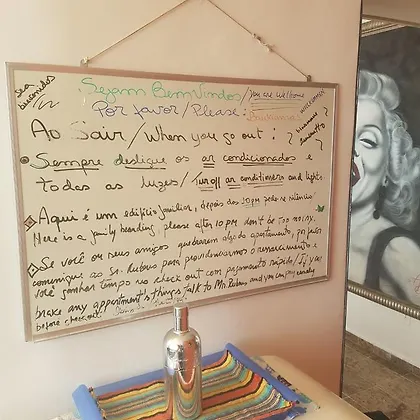 Sejam BemVindos / you are welcome
Por favor / Please:
Ao Sair / When you go out:
Sempre desligue os ar condicionados e
todas as luzes / Turn off air conditioners and lights.
Aqui é um edifício familiar, depois das 10pm pede-se silêncio/
Here is a family boarding, please after 10pm don't be too noisy.
Se você ou seus amigos quebrarem algo do apartamento, por favor
comunique ao Sr. Rubens para providenciarmos o ressarcimento e
você ganhar tempo no check out com pagamento rápido / If you
brake any appartment's things talk to Mr Rubens and you can pay
before check out.